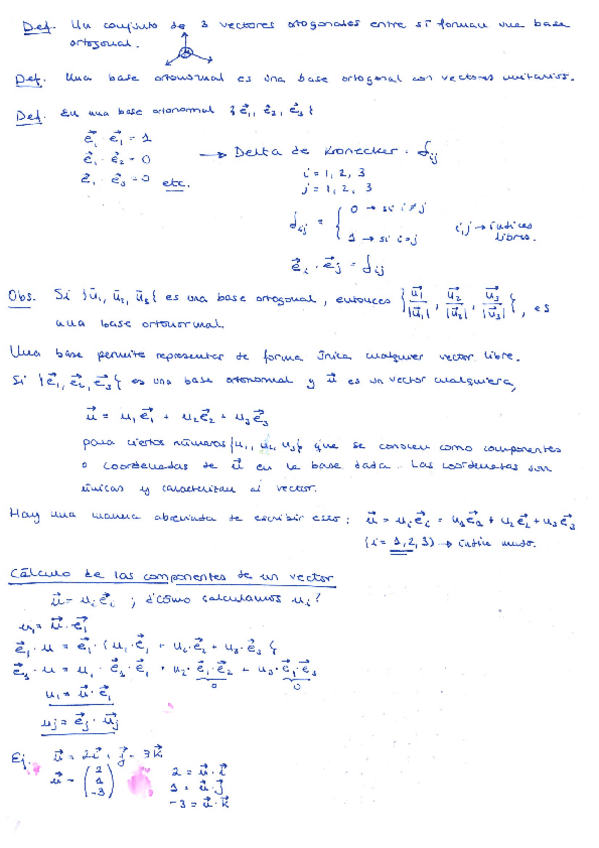 Def. Un conjunto de 3 vectores ortogonales entre sí forman una base
ortogonal.
Def. Una base ortonormal es una base ortogonal con vectores unitarios.
Def. En una base ortonormal {e⃗₁, e⃗₂, e⃗₃}
e⃗₁ · e⃗₁ = 1
e⃗₁ · e⃗₂ = 0 → Delta de Kronecker: δij
e⃗₁ · e⃗₃ = 0 etc.
i = 1, 2, 3
j = 1, 2, 3
δij = { 0 → si i≠j
1 → si i=j
i,j → índices
libres.
e⃗i · e⃗j = δij
Obs. Si {u⃗₁, u⃗₂, u⃗₃} es una base ortogonal, entonces {u⃗₁/|u⃗₁|, u⃗₂/|u⃗₂|, u⃗₃/|u⃗₃|}, es
una base ortonormal.
Una base permite representar de forma única cualquier vector libre.
Si {e⃗₁, e⃗₂, e⃗₃} es una base ortonormal y u⃗ es un vector cualquiera,
u⃗ = u₁e⃗₁ + u₂e⃗₂ + u₃e⃗₃
para ciertos números {u₁, u₂, u₃} que se conocen como componentes
o coordenadas de u⃗ en la base dada. Las coordenadas son
únicas y caracterizan al vector.
Hay una manera abreviada de escribir esto: u⃗ = uie⃗i = u₁e⃗₁ + u₂e⃗₂ + u₃e⃗₃
(i = 1, 2, 3) → índice mudo.
Cálculo de las componentes de un vector
u⃗ = uie⃗i ; ¿cómo calculamos ui?
u₁ = u⃗ · e⃗₁
e⃗₁ · u = e⃗₁ · {u₁ · e⃗₁ + u₂ · e⃗₂ + u₃ · e⃗₃}
e⃗₁ · u = u₁ · e⃗₁ · e⃗₁ + u₂ · e⃗₁ · e⃗₂ + u₃ · e⃗₁ · e⃗₃
0 0
u₁ = u⃗ · e⃗₁
uj = e⃗j · u⃗j
Ej. u⃗ = 2i⃗ + j⃗ - 3k⃗
u⃗ = (2 1 -3)
2 = u⃗ · i⃗
1 = u⃗ · j⃗
-3 = u⃗ · k⃗